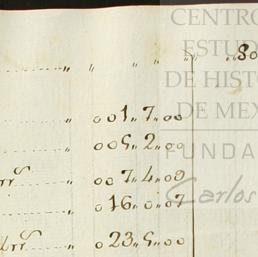 CENTRO
ESTUD
DE HIST
DE MEX
FUNDA
Carlos
„ „ „ „ „ 80
„ 001„ 7„ 00
005„ 2„ 00
„ 007„ 4„ 00
„ 016„ 0„ 07
„ 023„ 5„ 00